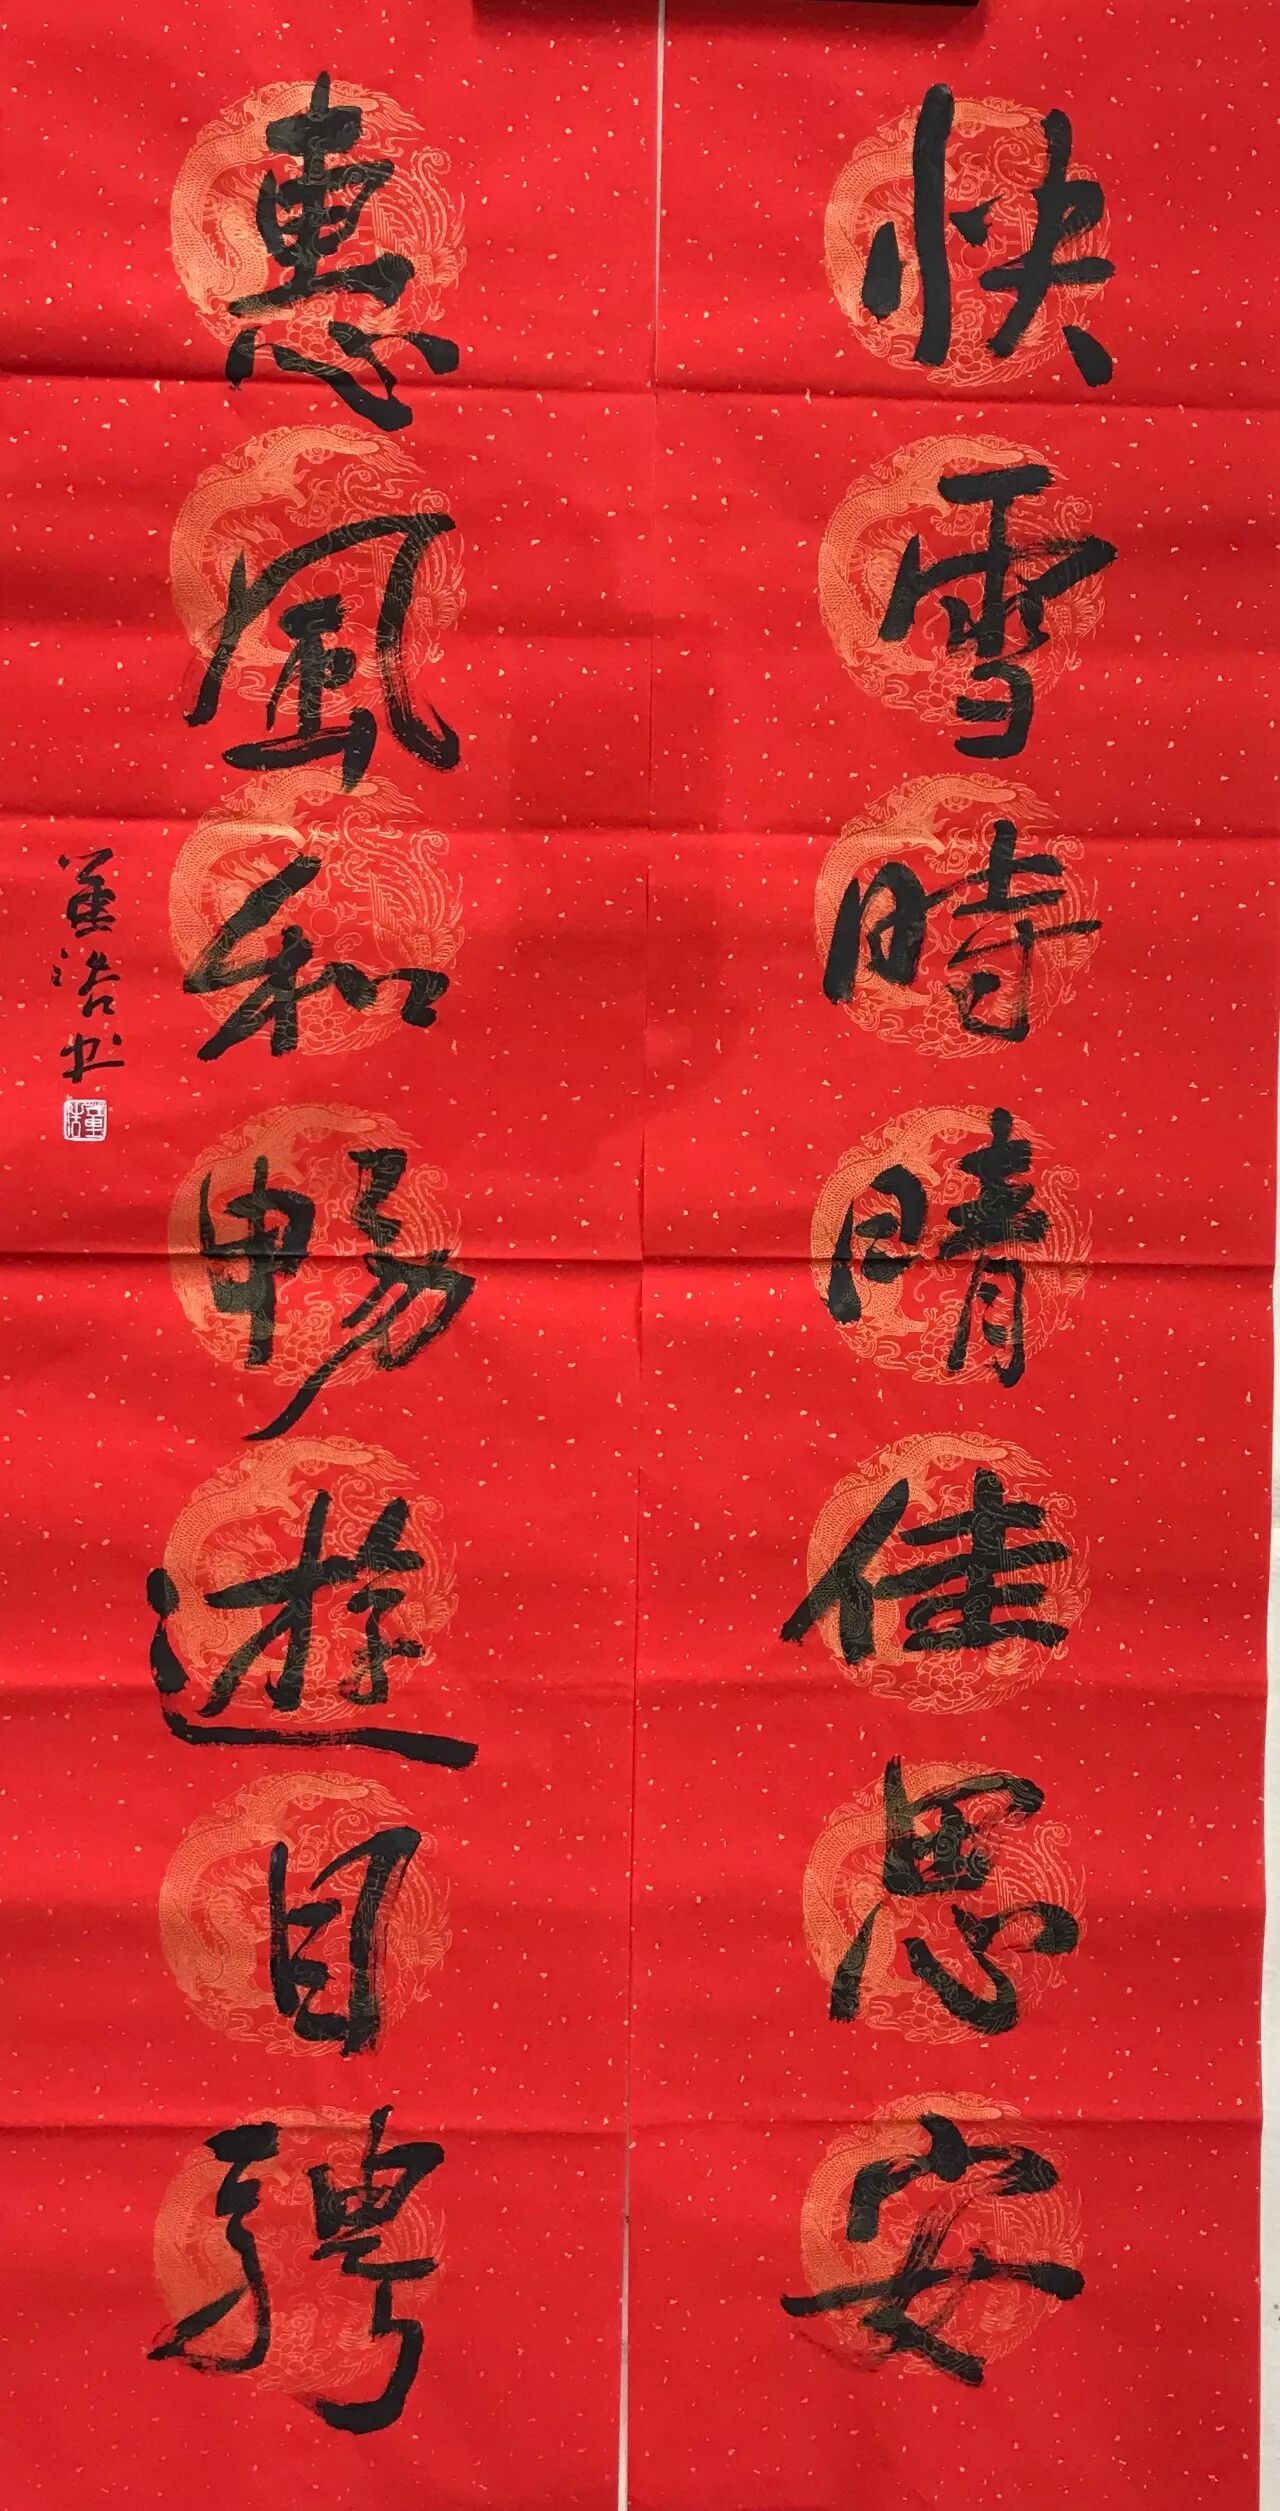 快雪時晴佳思安
惠風和暢遊目騁
董浩书
董浩